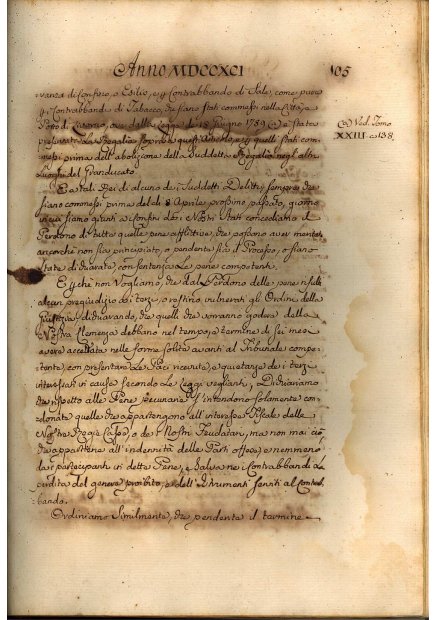 Anno MDCCXCI
105
vanza di Confino, o Esilio, e gl Contrabbando di Sale, come pure
gl Contrabbando di Tabacco, che siano stati commessi nella Città, e
Porto di Livorno, ove dalla Legge de 18 Giugno 1789 (a) è stata
preservata la Regalia sopra di questi Articoli, e gl quelli stati com
messi prima dell'abolizione della Suddetta Regalia negl'altri
luoghi del Granducato.
(a) Ved. Tomo
XXIII. c. 138.
E a tali Rei di alcuno de i Suddetti Delitti, sempre che
siano commessi prima del dì 8 Aprile prossimo passato, giorno
in cui siamo giunti a i Confini dei Nostri Stati concediamo il
Perdono di tutte quelle pene afflittive, che possono aver meritate
ancorchè non sia principiato, o pendente sia il Processo, o siano
state dichiarate con Sentenza le pene competenti.
E gl che non Vogliamo, che dal Perdono delle pene
alcun pregiudizio dei terzi, o restino vulnerati gli Ordini della
Giustizia, dichiarando, che quelli che vorranno godere della
Nostra Clemenza debbano nel tempo, e termine di sei mesi
avere accettata nelle forme solite avanti al Tribunale compe
tente, con presentare la Pace ricevuta, e quietanze dei terzi
interessati in causa secondo le Leggi veglianti, Dichiariamo
che rispetto alle Pene Pecuniarie s'intendono solamente con
donate quelle che appartengono all'interesse Fiscale della
Nostra Regia Cassa, o dei Nostri Feudatari, ma non mai ciò
che appartiene all'indennità delle Parti offese, e nemmeno
dei partecipanti in dette Pene, e salva nei Contrabbandi la
perdita del genere proibito, e dell'Istrumenti serviti al Contrab
bando.
Ordiniamo Similmente, che pendente il termine